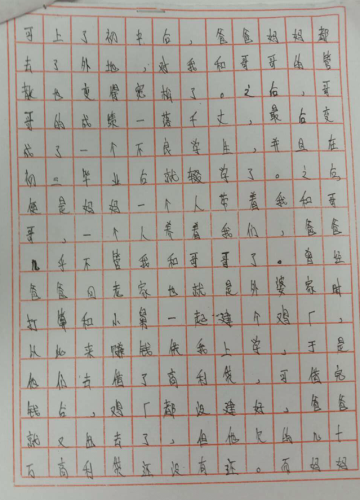 哥上了初中后，爸爸妈妈都
去了外地，对我和哥哥的管
教也变得宽松了。之后，哥
哥的成绩一落千丈，最后变
成了一个不良学生，并且在
初二毕业后就辍学了。之后
便是妈妈一个人带着我和哥
哥，一个人养着我们，爸爸
几乎不管我和哥哥了。曾经
爸爸回老家也就是外婆家时
打算和小舅一起建个鸡厂，
以此来赚钱供我上学，于是
他们去借了高利贷，可借完
钱后，鸡厂都没建好，爸爸
就又出去了，但他欠的几十
万高利贷还没有还。而妈妈